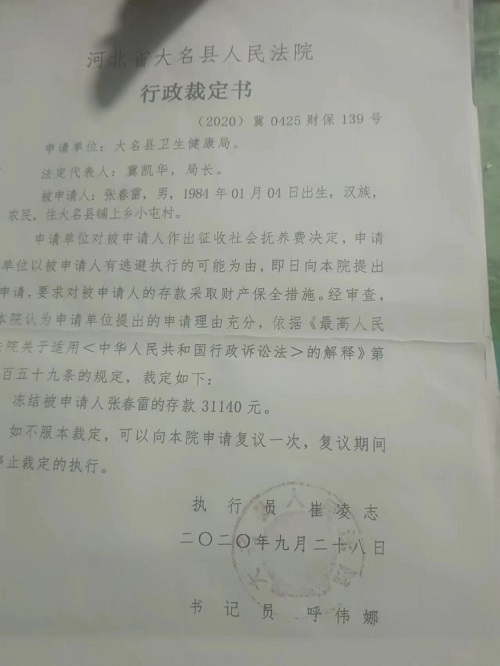 河北省大名县人民法院
行政裁定书
（2020）冀 0425 财保 139 号
申请单位：大名县卫生健康局。
法定代表人：冀凯华，局长。
被申请人：张春雷，男，1984 年 01 月 04 日出生，汉族，
农民，住大名县铺上乡小屯村。
申请单位对被申请人作出征收社会抚养费决定，申请
单位以被申请人有逃避执行的可能为由，即日向本院提出
申请，要求对被申请人的存款采取财产保全措施。经审查，
本院认为申请单位提出的申请理由充分，依据《最高人民
法院关于适用<中华人民共和国行政诉讼法>的解释》第
百五十九条的规定，裁定如下：
冻结被申请人张春雷的存款 31140 元。
如不服本裁定，可以向本院申请复议一次，复议期间
停止裁定的执行。
执 行 员 崔凌志
二〇二〇年九月二十八日
书 记 员 呼伟娜